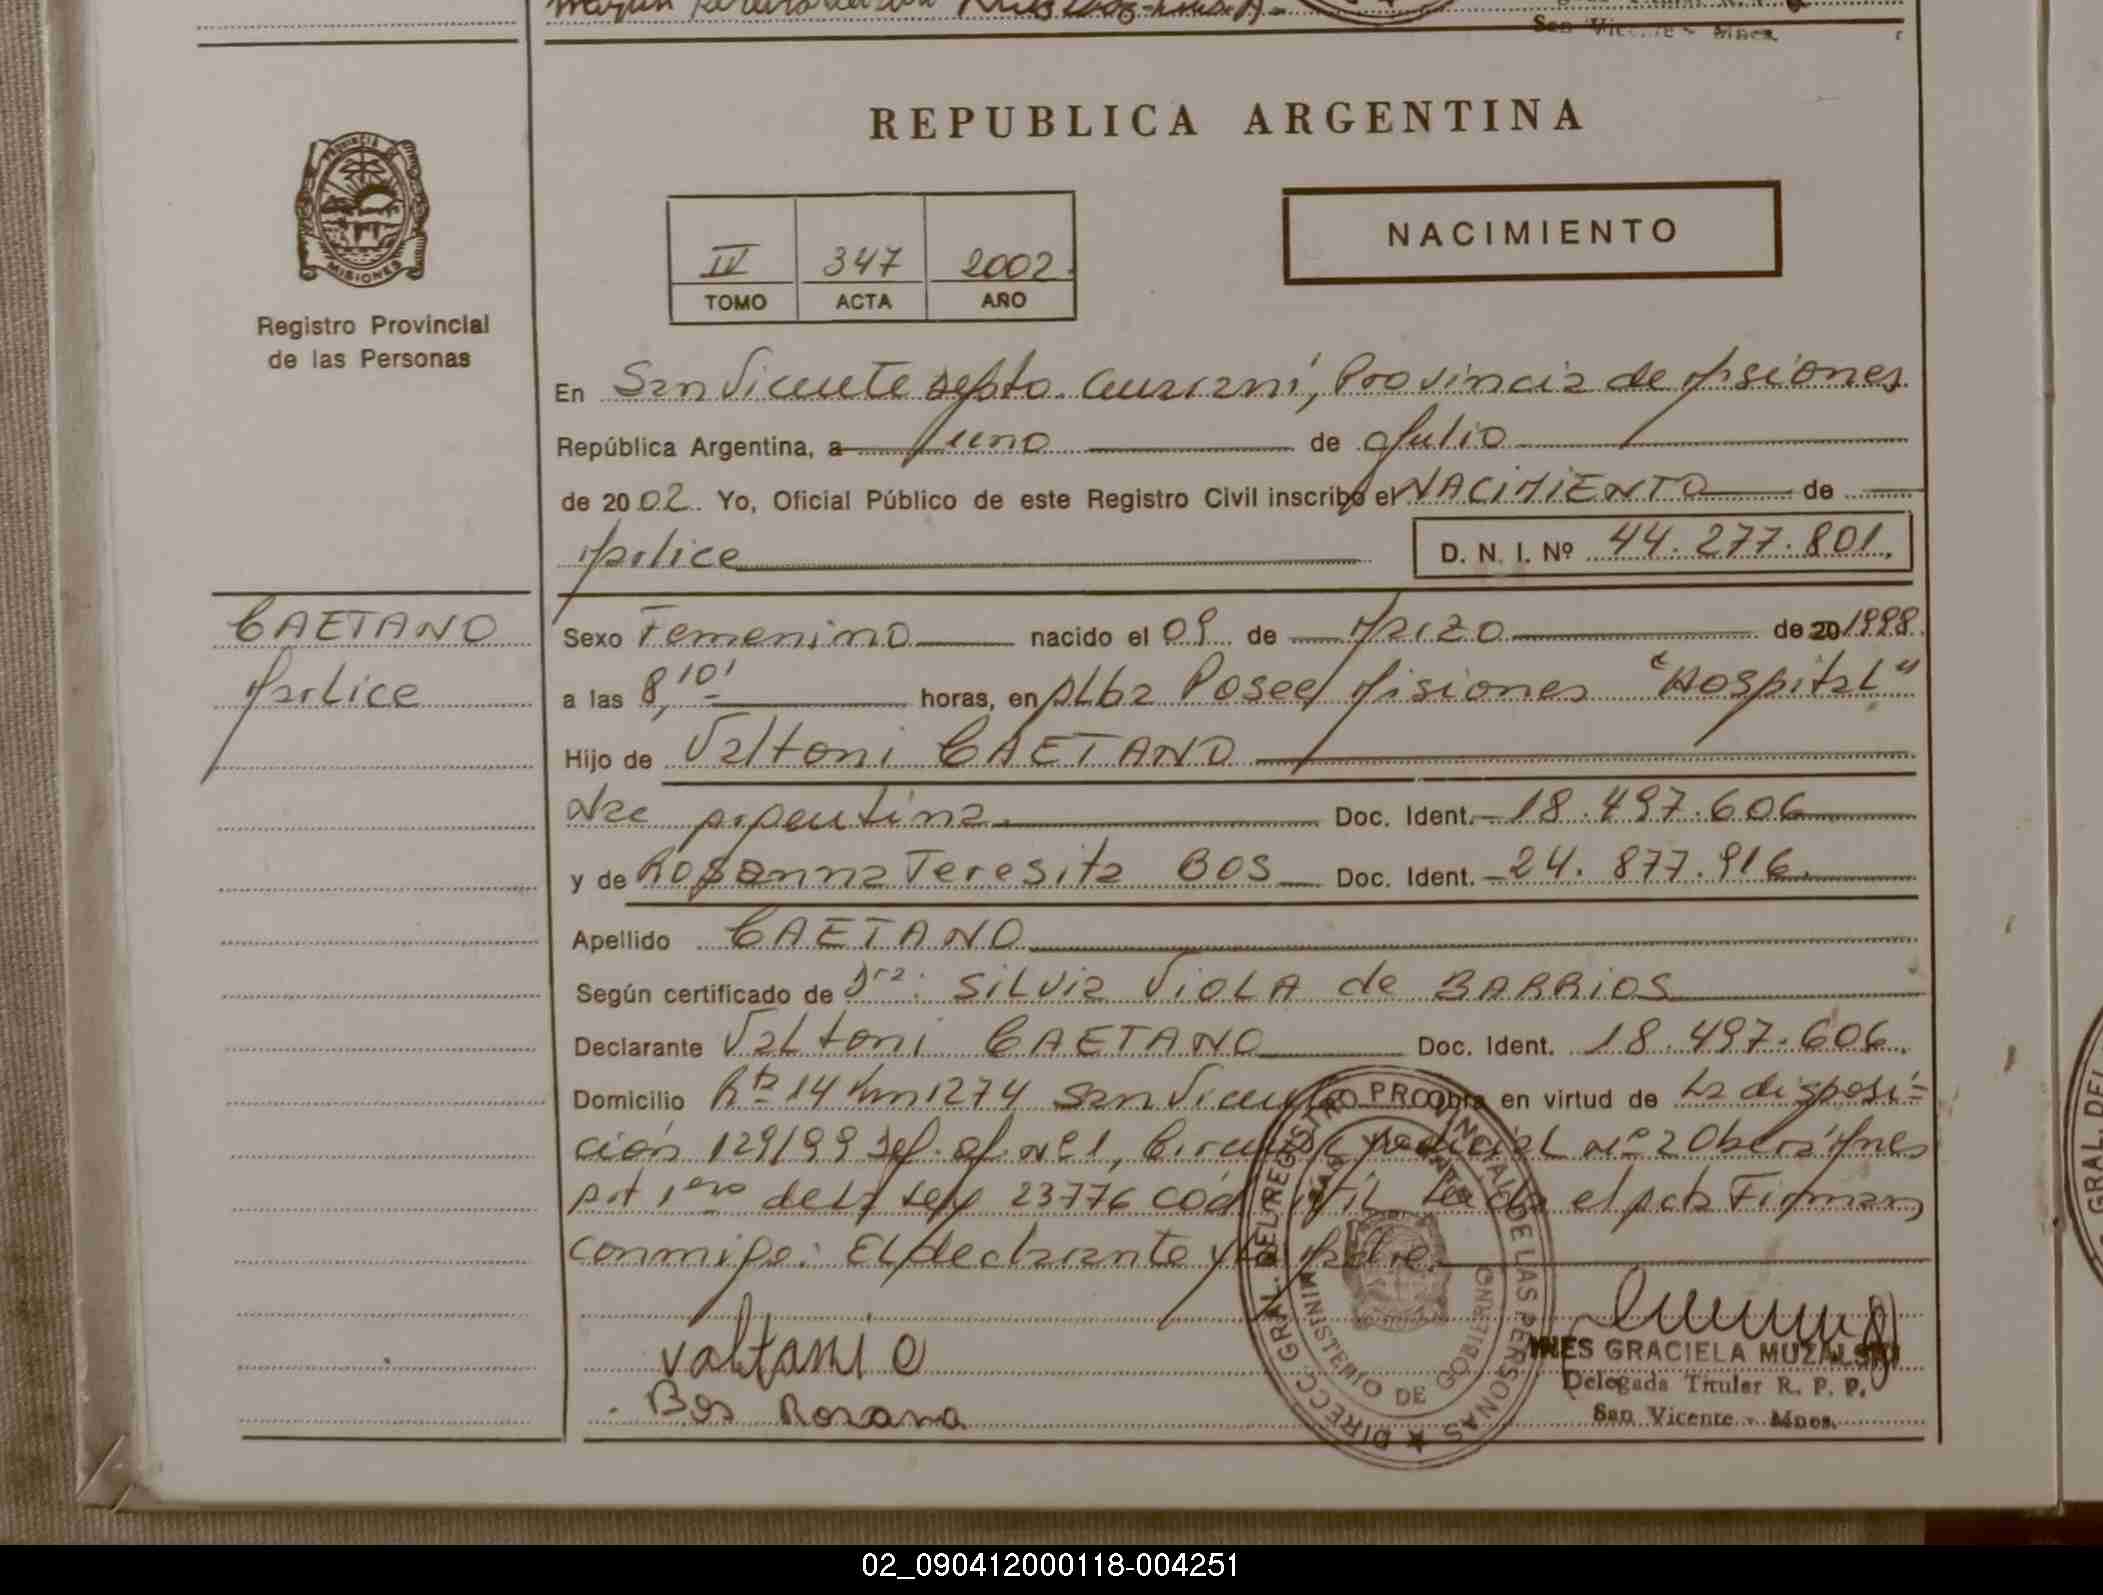 REPUBLICA ARGENTINA
PROVINCIA DE MISIONES
Registro Provincial
de las Personas
IV 347 2002
TOMO ACTA AÑO
NACIMIENTO
En San Vicente Depto. Guaraní, Provincia de Misiones
República Argentina, a uno de Julio
de 2002. Yo, Oficial Público de este Registro Civil inscribo el NACIMIENTO de
Marlice D. N. I. Nº 44.277.801.
CAETANO
Marlice
Sexo Femenino nacido el 09 de Marzo de 20 1998.
a las 8,10' horas, en Alba Posee, Misiones "Hospital"
Hijo de Valtoni CAETANO
Nac Argentina Doc. Ident. 18.497.606
y de Rosanna Teresita BOS Doc. Ident. 24.877.916
Apellido CAETANO
Según certificado de Dra: Silvia VIOLA de BARRIOS
Declarante Valtoni CAETANO Doc. Ident. 18.497.606.
Domicilio Rta 14 Km 1274 San Vicente Obra en virtud de la disposi-
ción 129/99 Nº 1, Judicial Nº 2 Oberá Mnes
Art 1ero de la Ley 23776 Cód Civil Leída el Acta Firman,
conmigo: El declarante y la Madre.
Valtani C
Bos Rosana
DIRECC. GRAL. DEL REGISTRO PROVINCIAL DE LAS PERSONAS
MINISTERIO DE GOBIERNO
INES GRACIELA MUZALSKI
Delegada Titular R. P. P.
San Vicente - Mnes.
02_090412000118-004251